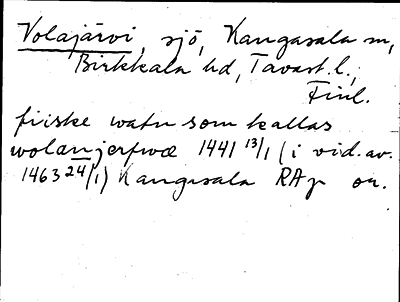 Volajärvi, sjö, Kangasala sn,
Birkkala hd, Tavast. l.,
Finl.
fiiske watn som kallas
wolanjerfwæ 1441 13/1 (i vid. av.
1463 24/1) Kangasala RAp or.